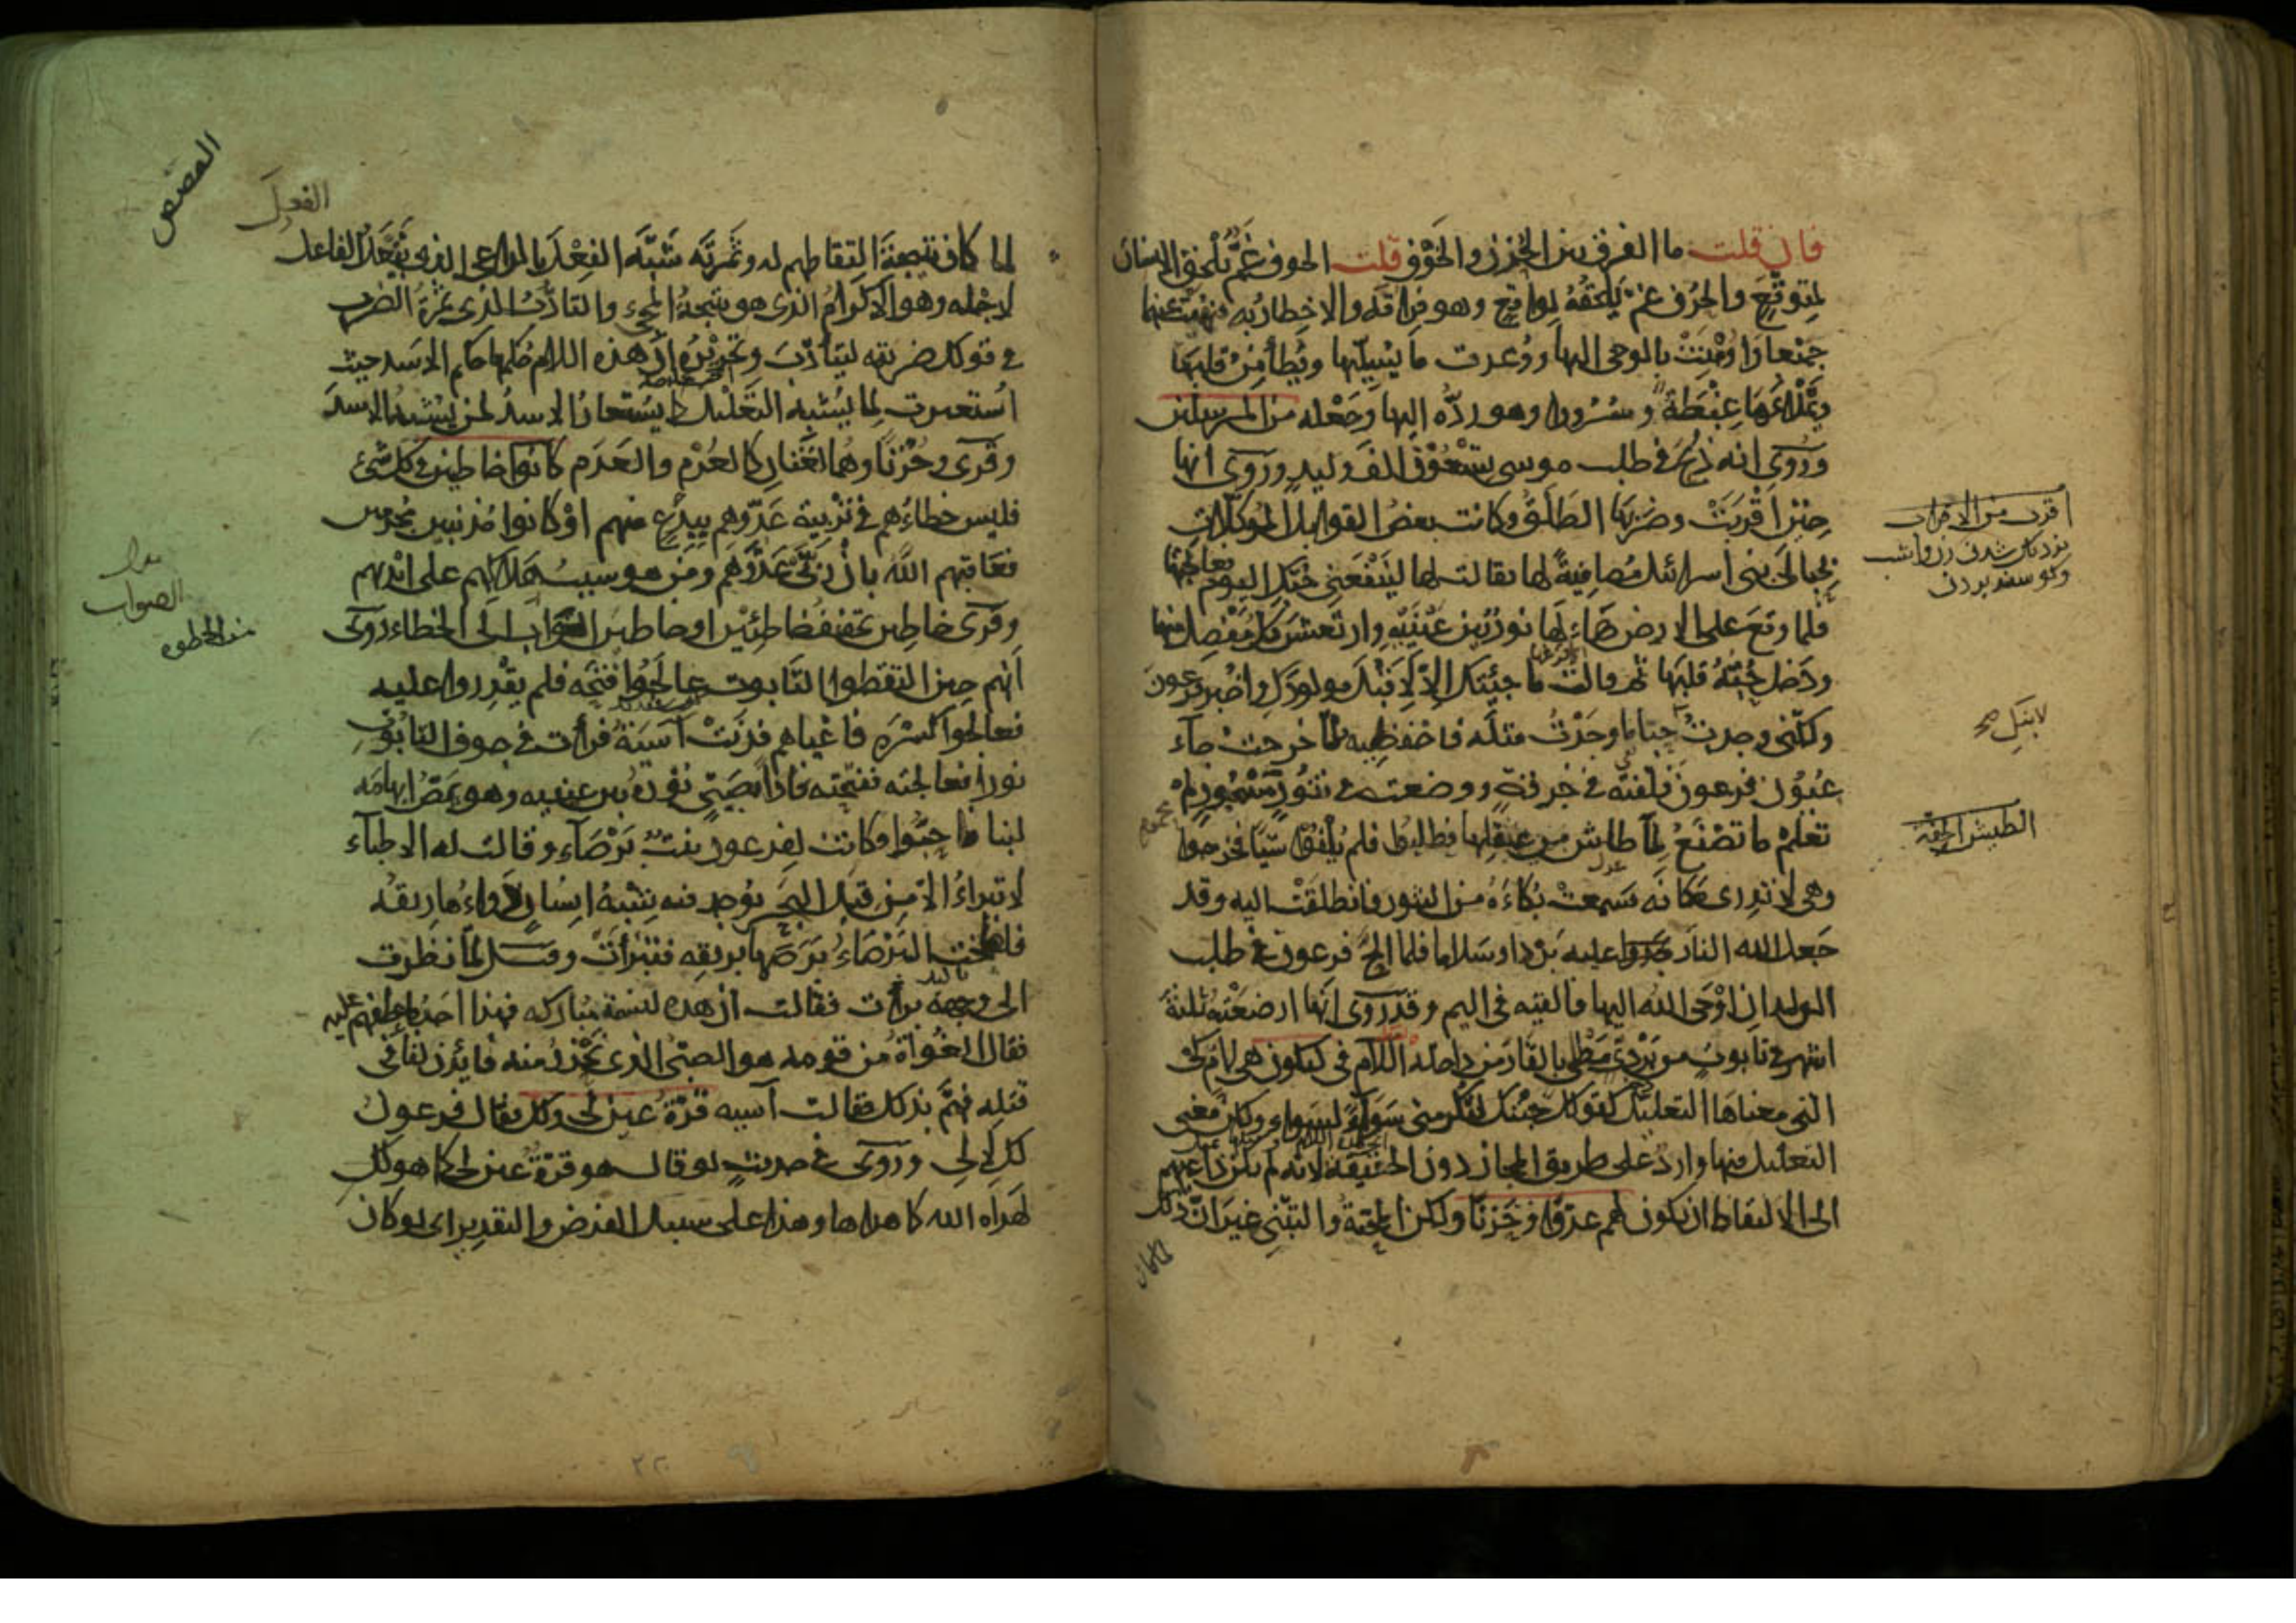 فان قلت ما الفرق بين الحزن والخوف قلت الخوف غمّ يلحق الانسان
لمتوقّع والحزن غمّ يلحقه لواقع وهو فراقه والاخطار به فنهيت عنهما
جميعا واومنت بالوحى اليها ووعدت ما يسليها ويطأمن قلبها
ويملأها غبطة وسرورا وهو ردّه اليها وجعله من المرسلين
وروى انه ذبح فى طلب موسى تسعون الف وليد وروى انها
حين اقربت وضربها الطلق وكانت بعض القوابل الموكلات
بحبالى بنى اسرائيل مصافية لها فقالت لها لينفعنى حبّك اليوم فعالجتها
فلما وقع على الارض هاءلها نور بين عينيه وارتعش كل مفصل منها
ودخل حبّه قلبها ثم قالت ما جيئتك الا لاقبل مولودك واخبر فرعون
ولكنّى وجدت لابنك حبّا ما وجدت مثله فاحفظيه فلما خرجت جاء
عيون فرعون فلفته فى خرقة ووضعته فى تنّور مسجور لم
تعلم ما تصنع لما طاش من عقلها فطلبوا فلم يلفوا شيّا فخرجوا
وهى لا تدرى مكانه فسمعت بكاءه من التنور فانطلقت اليه وقد
جعل الله النار عليه بردا وسلاما فلما الحّ فرعون فى طلب
الولدان اوحى الله اليها فالقيه فى اليم وقد روى انها ارضعته ثلثة
اشهر فى تابوت من بردى مطلى بالقار من داخله اللام فى ليكون هى لام كى
التى معناها التعليل كقولك جئتك لتكرمنى سواء بسواء ولكن معنى
التعليل فيها وارد على طريق المجاز دون الحقيقة لانه لم يكن داعيهم
الى الالتقاط ان يكون لهم عدوّا وحزنا ولكن المحبة والتبنّى غير ان ذلك
لما كان
اقربت من الاقراب
نزديك شدن
لابنك صح
الطيش الخفة
القصص
الفعل
لما كان نتيجة التقاطهم له وثمرته شبّه بالداعى الذى يفعل الفاعل
لاجله وهو الاكرام الذى هو نتيجة المجىء والتادّب الذى هو ثمرة الضرب
فى قولك ضربته ليتأدّب وتحريره ان هذه اللام حكمها حكم الاسد حيث
استعيرت لما يشبه التعليل كما يستعار الاسد لمن يشبه الاسد
وقرى وحزنا وهما لغتان كالعدم والعدم كانوا خاطئين فى كل شىء
فليس خطاءهم فى تربية عدوهم ببدع منهم او كانوا مذنبين مجرمين
فعاقبهم الله بان ربّى عدوّهم ومن هو سبب هلاكهم على ايديهم
وقرى خاطين تخفيف خاطئين او خاطين الصواب الى الخطاء روى
انهم حين التقطوا التابوت عالجوا فتحه فلم يقدروا عليه
فعالجوا كسره فاعياهم فدنت آسية فرأت فى جوف التابوت
نورا فعالجته ففتحته فاذا بصبىّ نوره بين عينيه وهو يمصّ ابهامه
لبنا فاحبّوه وكانت لفرعون بنت برصاء وقالت له الاطباء
لا تبراء الا من قبل البحر يوجد فيه شبه انسان دواءها ريقه
فلطخت البرصاء برصها بريقه فبرأت وقيل لما نظرت
الى وجهه برأت فقالت ان هذه لنسمة مباركة فهذا احد ما عطفهم عليه
فقال الغواة من قومه هو الصبىّ الذى نحذر منه فايذن لنا فى
قتله فهمّ بذلك فقالت آسية قرّة عين لى ولك فقال فرعون
لك لا لى وروى فى حديث لو قال هو قرّة عين لى كما هو لك
لهداه الله كما هداها وهذا على سبيل الفرض والتقدير اى لو كان
الصواب
من الخطوه
٢٢